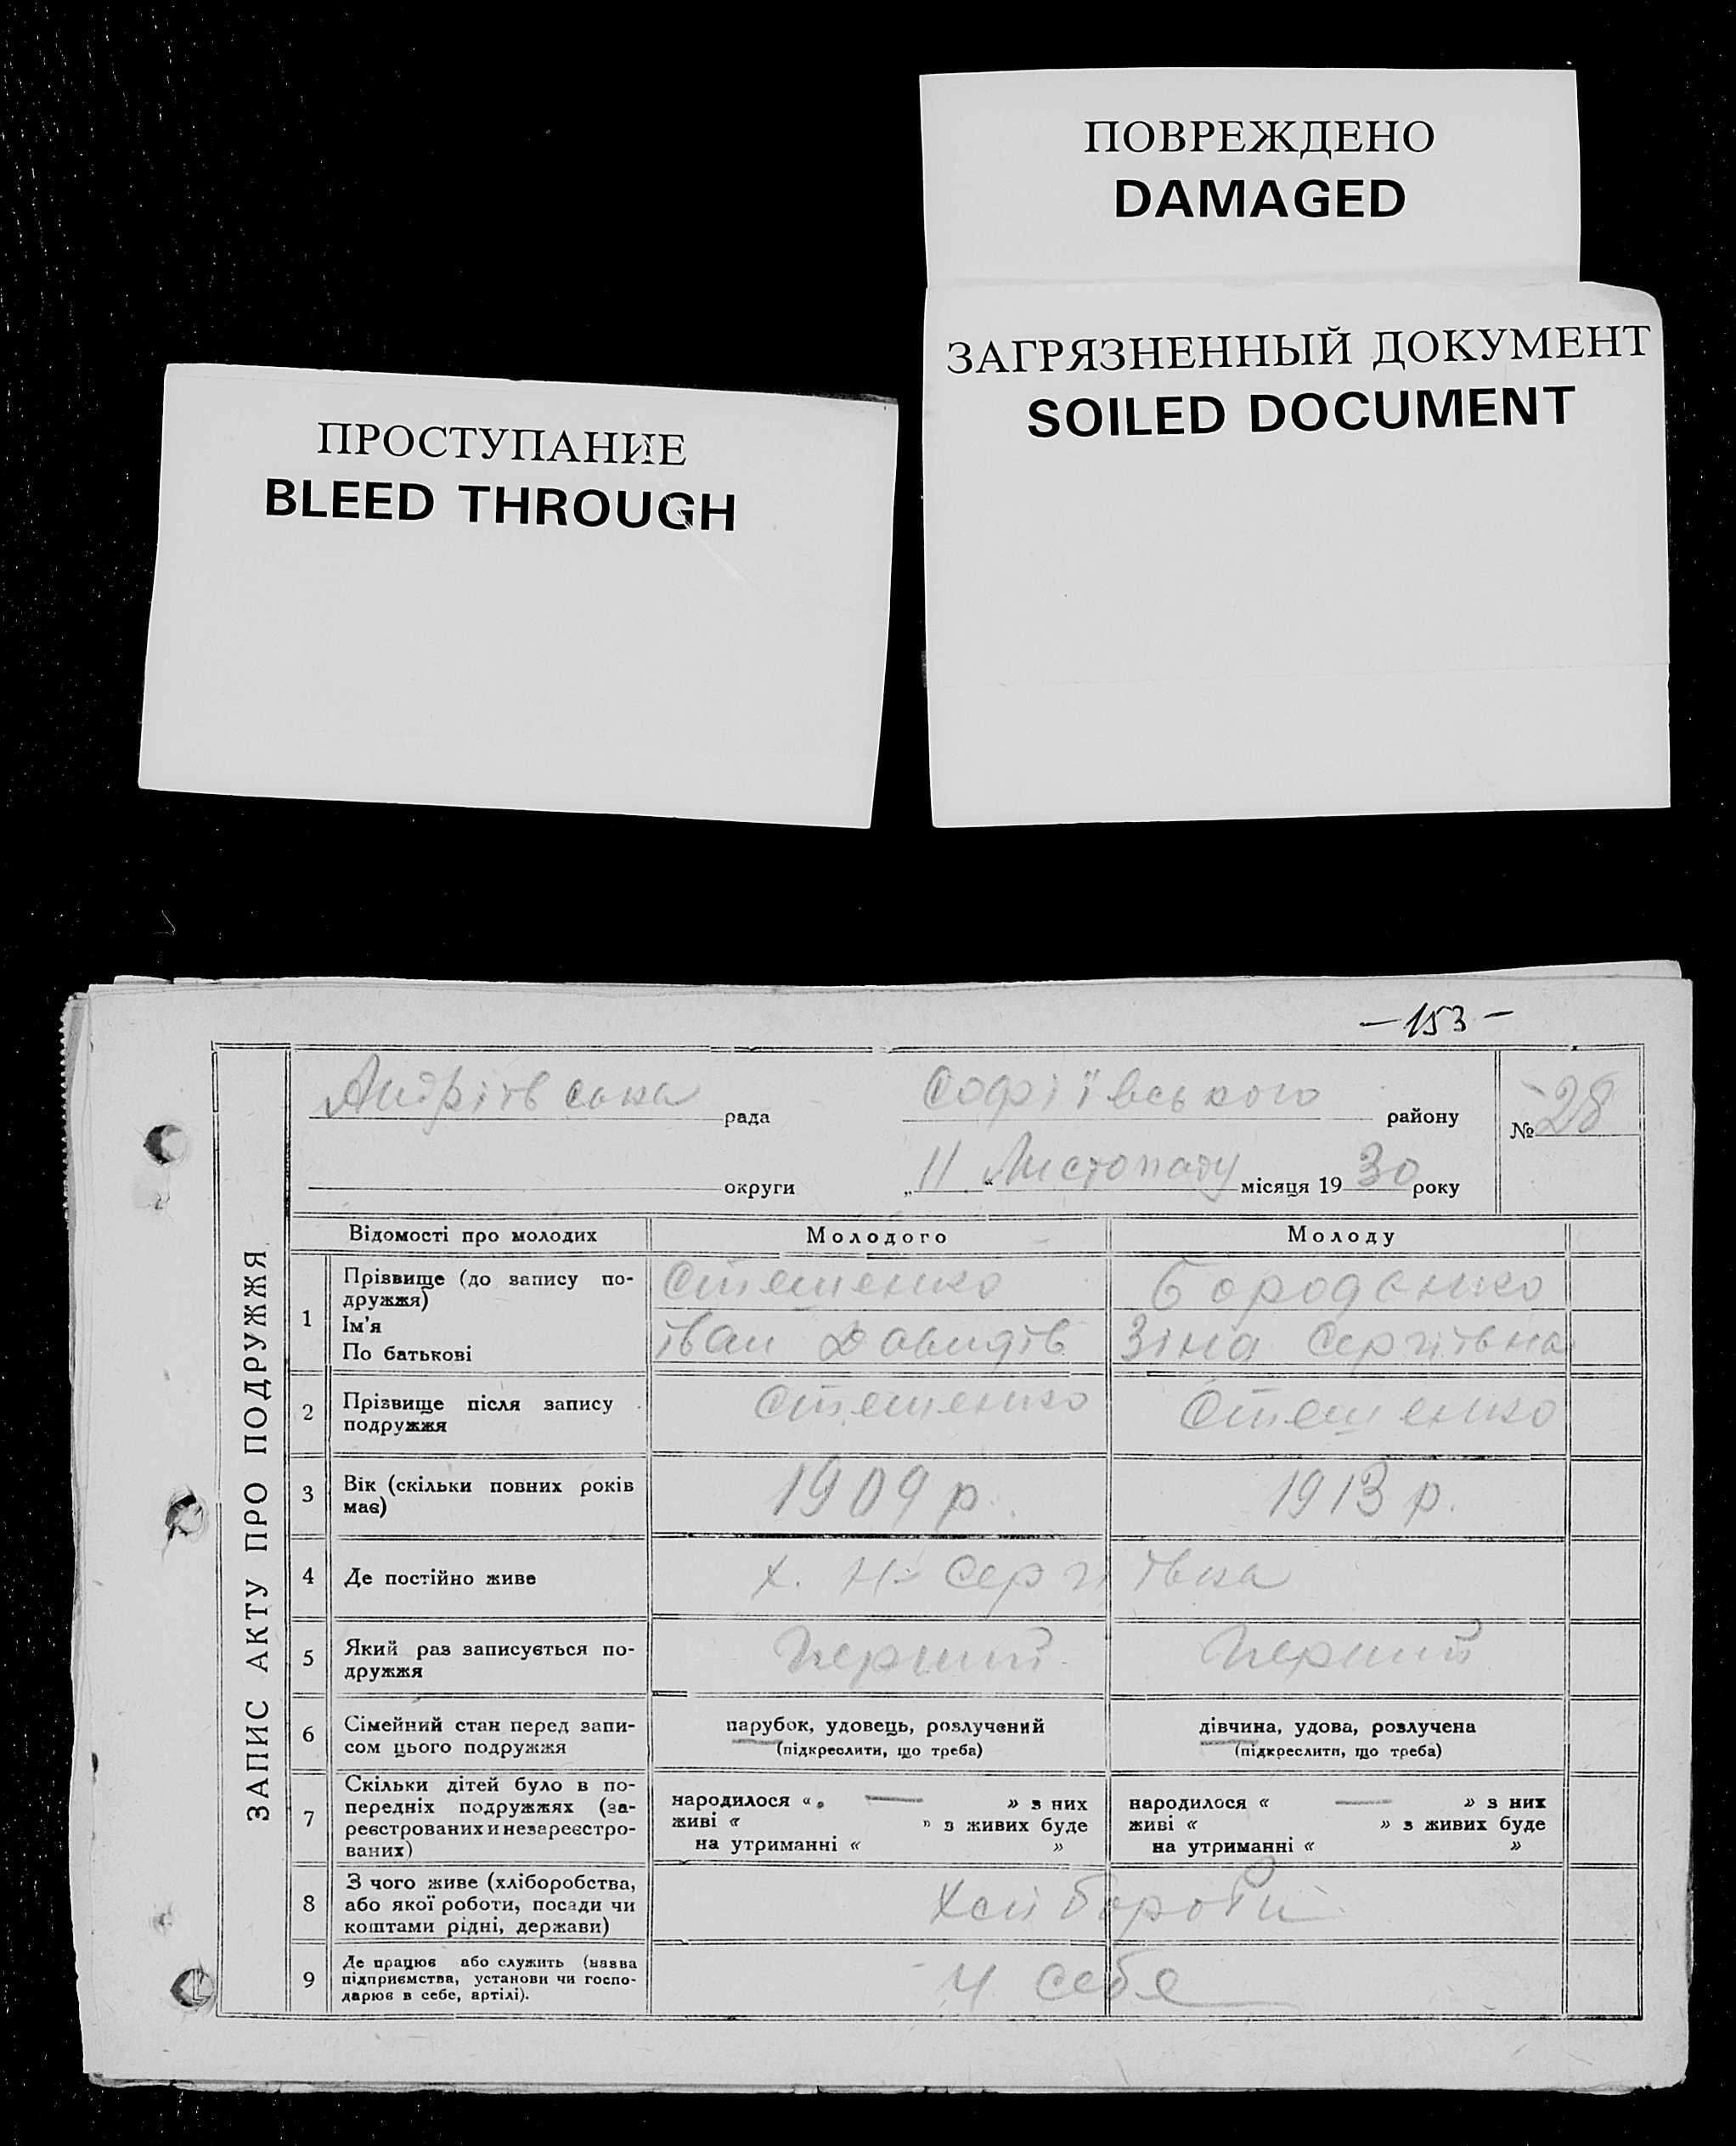 ПОВРЕЖДЕНО
DAMAGED
ЗАГРЯЗНЕННЫЙ ДОКУМЕНТ
SOILED DOCUMENT
ПРОСТУПАНИЕ
BLEED THROUGH
— 153 —
ЗАПИС АКТУ ПРО ПОДРУЖЖЯ
Андріївська рада Софіївського району № 28
округи „11“ Листопаду місяця 1930 року
Відомості про молодих Молодого Молоду
1 Прізвище (до запису по-
дружжя) Стешенко Бороденко
Ім'я
По батькові Іван Давидів Зіна Сергіївна
2 Прізвище після запису
подружжя Стешенко Стешенко
3 Вік (скільки повних років
має) 1909 р. 1913 р.
4 Де постійно живе х. Н-Сергіївка
5 Який раз записується по-
дружжя Перший Перший
6 Сімейний стан перед запи-
сом цього подружжя
парубок, удовець, розлучений
(підкреслити, що треба)
дівчина, удова, розлучена
(підкреслити, що треба)
7 Скільки дітей було в по-
передніх подружжях (за-
реєстрованих и незареєстро-
ваних)
народилося « — » з них
живі « » з живих буде
на утриманні « »
народилося « — » з них
живі « » з живих буде
на утриманні « »
8 З чого живе (хліборобства,
або якої роботи, посади чи
коштами рідні, держави)
9 Де працює або служить (назва
підприємства, установи чи госпо-
дарює в себе, артілі). У себе